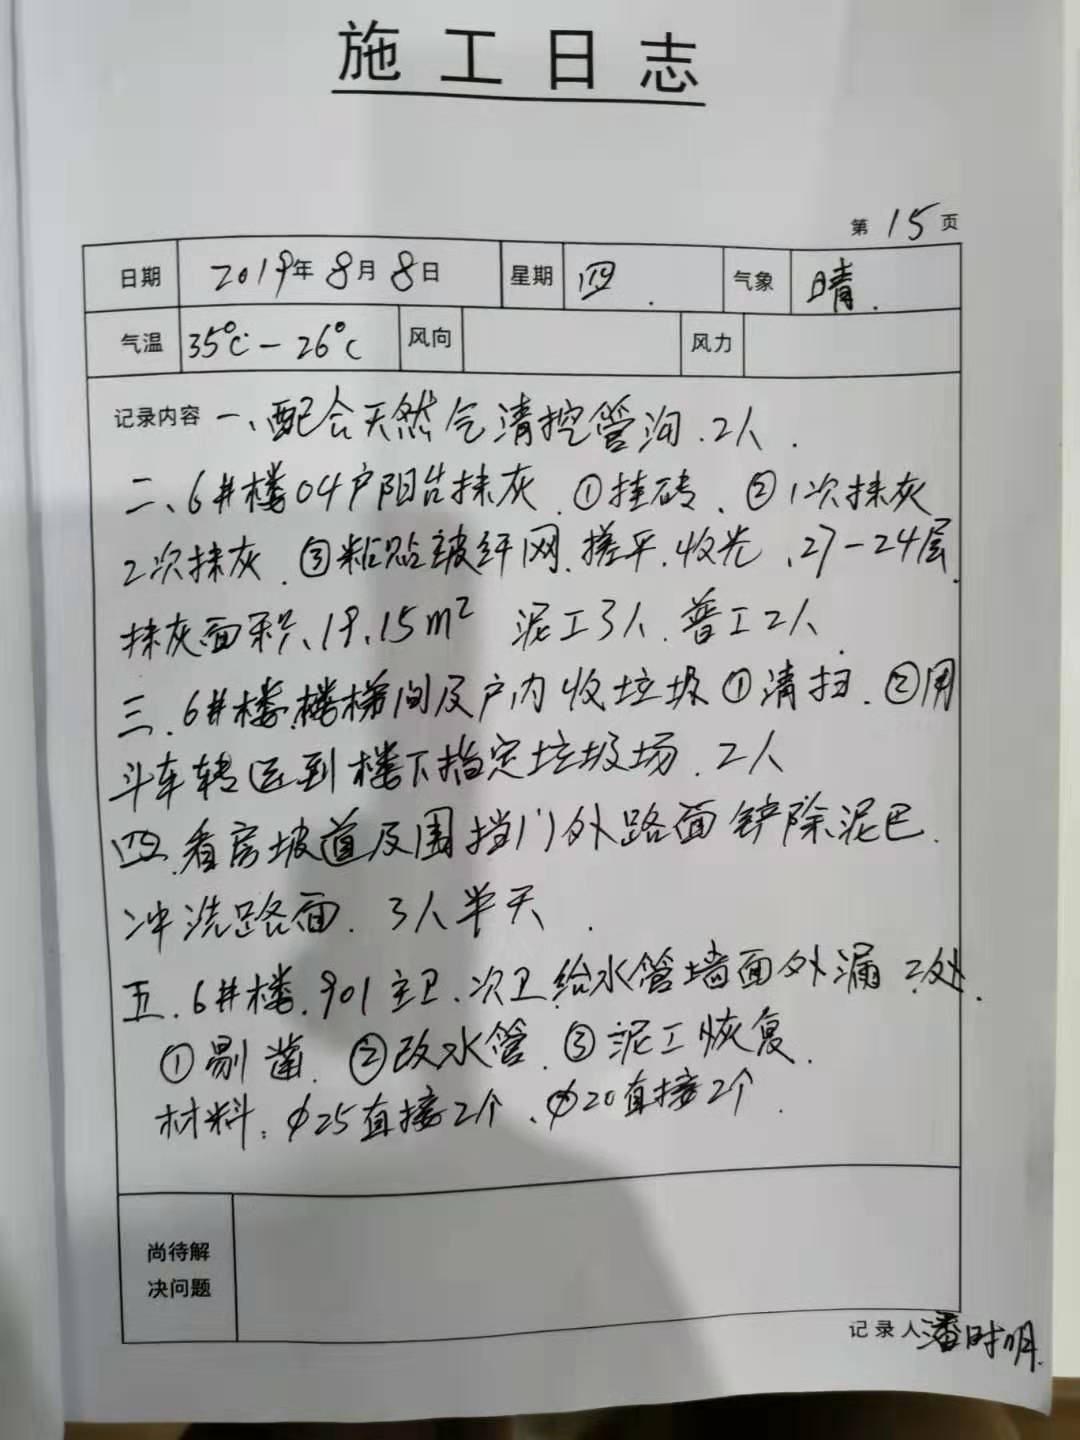 施工日志
第 15 页
日期 2019年 8月 8日 星期 四. 气象 晴.
气温 35℃-26℃ 风向 风力
记录内容 一、配合天然气清挖管沟.2人.
二、6#楼04户阳台抹灰.①挂砖、②1次抹灰
2次抹灰.③粘贴玻纤网.搓平.收光、27-24层.
抹灰面积、19.15m² 泥工3人.普工2人.
三.6#楼.楼梯间及户内收垃圾①清扫.②用
斗车转运到楼下指定垃圾场.2人
四.看房坡道及围挡门外路面铲除泥巴.
冲洗路面.3人半天.
五.6#楼.901主卫、次卫给水管墙面外漏2处.
①剔凿.②改水管.③泥工恢复.
材料:φ25直接2个、φ20直接2个.
尚待解
决问题
记录人 潘时明.